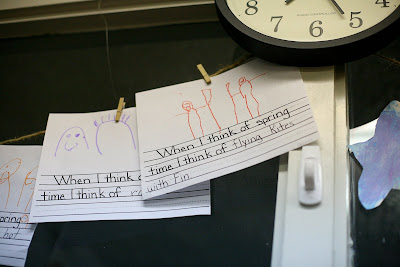 2
3
4
5
6
7
8
When I think of spring
time I think of flying Kites
with Fin
When I think
time I think of
Spring
hot